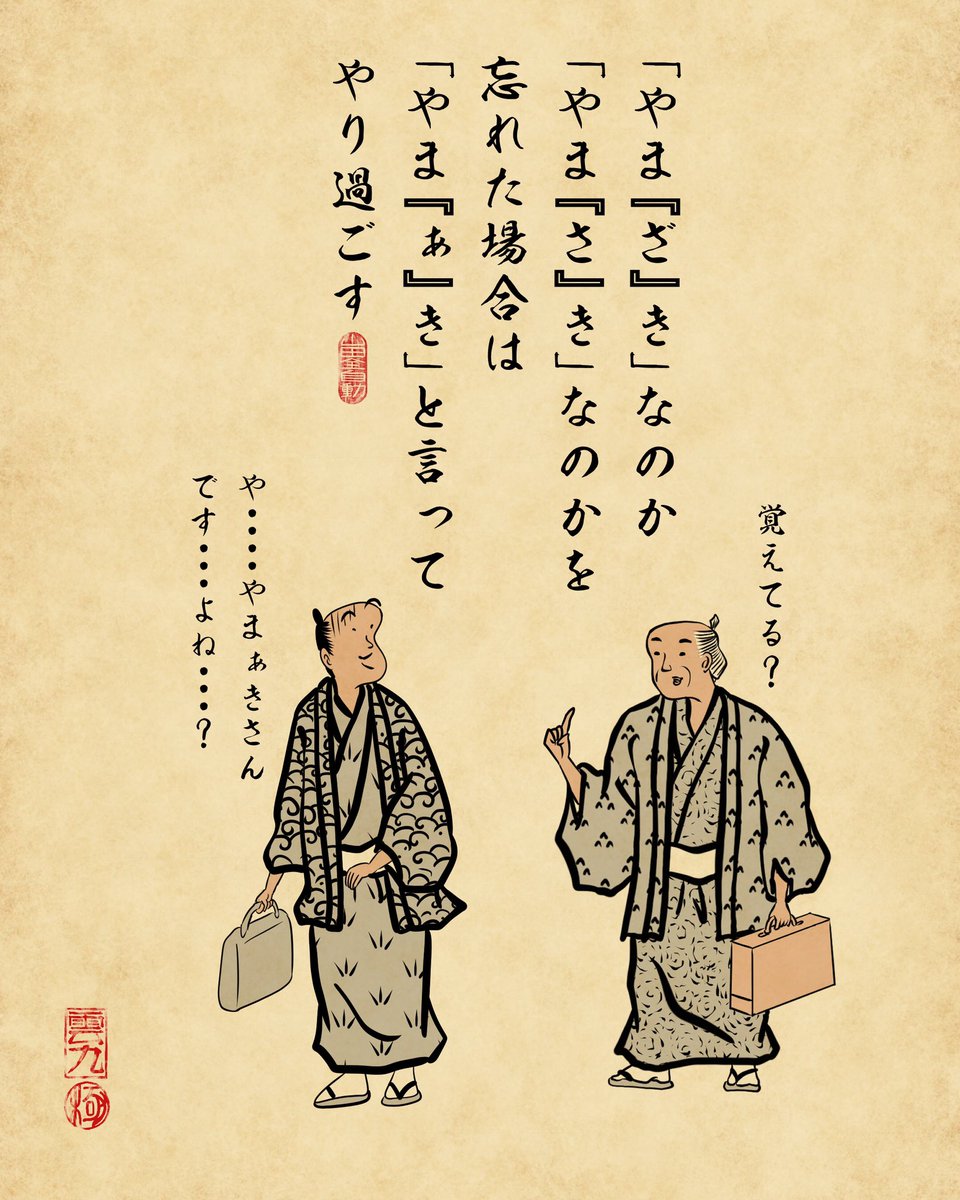 「やま『ざ』き」なのか
「やま『さ』き」なのかを
忘れた場合は
「やま『ぁ』き」と言って
やり過ごす
覚えてる？
や・・・・やまぁきさん
です・・・・よね・・・・？